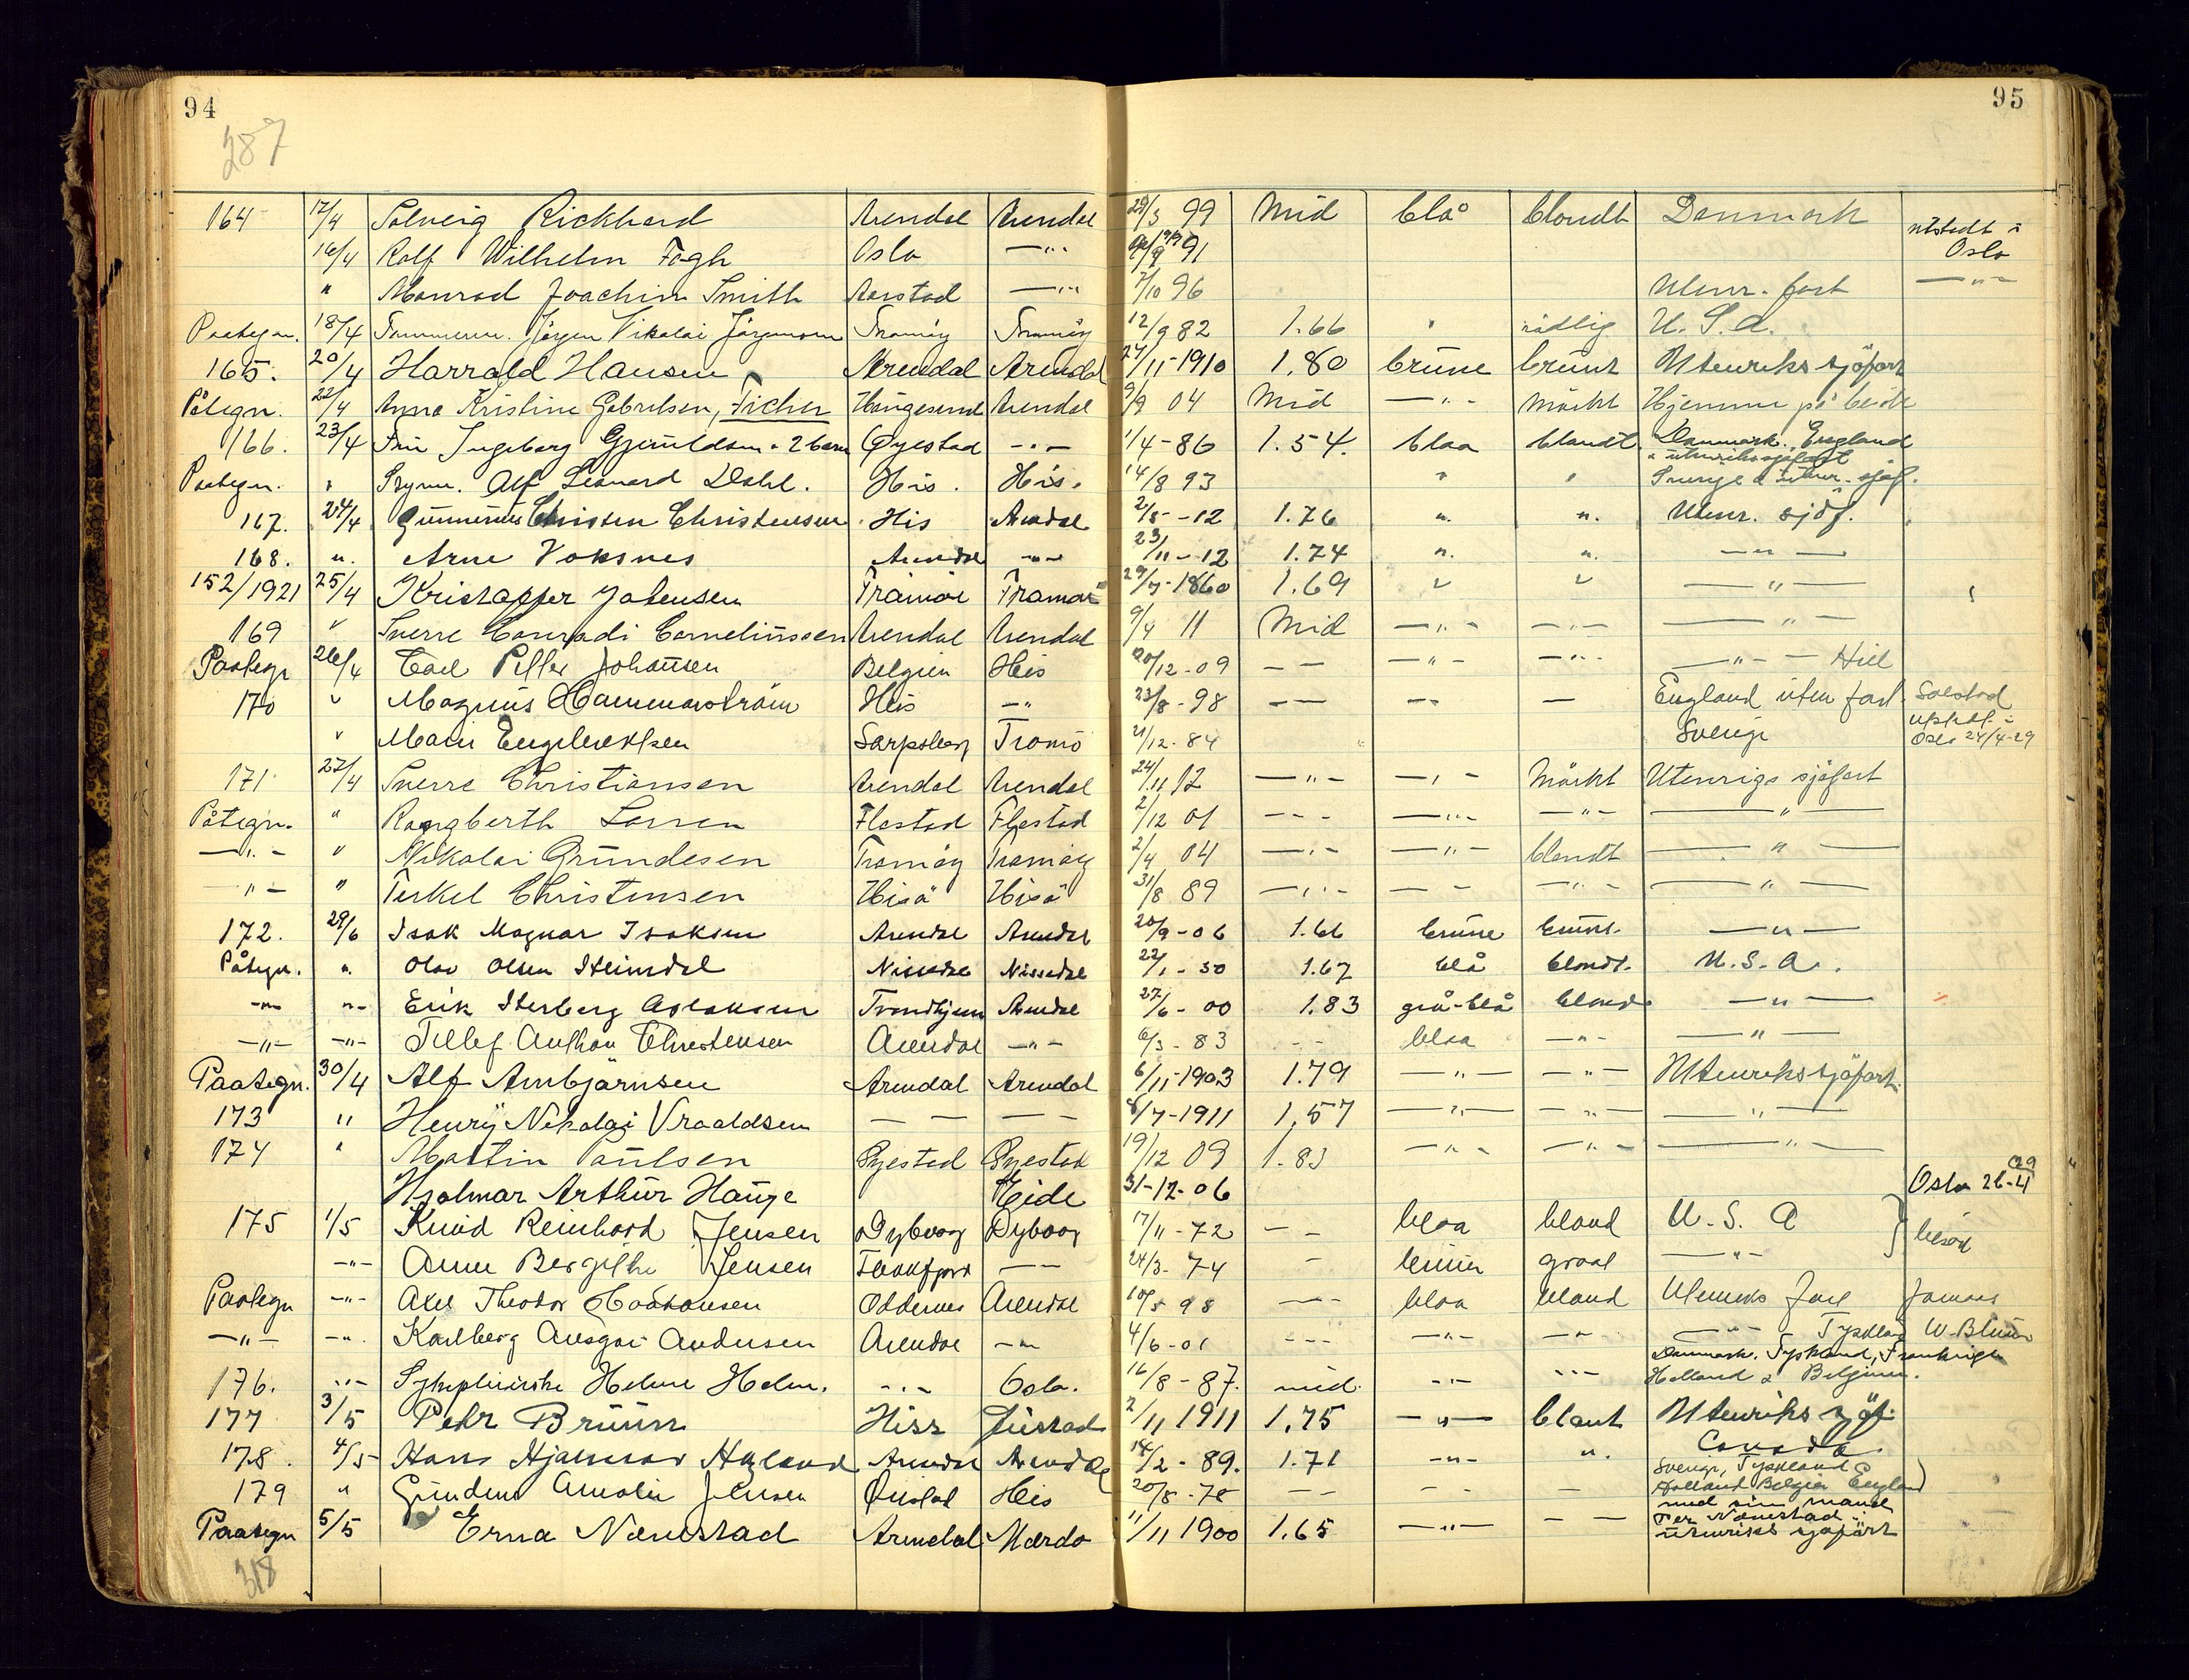 94
95
287
164 17/4 Solveig Rickhard Arendal Arendal 29/3 99 Mid blå blondt Danmark
16/4 Rolf Wilhelm Fogh Oslo —"— 91 utstedt i Oslo
" Monrad Joachim Smith Aarstad —"— 7/10 96 Utenr. fart —"—
Paategn. 18/4 Tømmerm. Jörgen Nikolai Jörgensen Tromöy Tromöy 12/9 82 1.66 " rödlig U. S. A.
165. 20/4 Harrald Hansen Arendal Arendal 27/11-1910 1.80 brune brunt Utenriks sjöfart
Påtegn. 22/4 Anna Kristine Gabrielsen, Ficher Haugesund Arendal 9/9 04 Mid —"— mörkt Hjemme på besök
166. 23/4 Fru Ingeborg Gjeruldsen + 2 barn Øyestad —"— 1/4-86 1.54. blaa blandt Danmark. England
& utenrikssjøfart
Paategn. " Styrm. Alf Leonard Dahl. His. His. 14/8 93 " " Sverige & Utenr. sjøf.
167. 24/4 Gunnerius Christen Christensen His Arendal 2/5-12 1.76 " " Utenr. sjöf.
168. " Arne Voksnes Arendal —"— 23/11-12 1.74 " " —"—
152/1921 25/4 Kristoffer Johensen Tromöe Tromöe 29/7-1860 1.69 " " —"—
169 " Sverre Conradi Corneliussen Arendal Arendal 9/4 11 Mid —"— —"— —"—
Paategn 26/4 Carl Peller Johansen Belgien His 20/12-09 — — —"— —"— —"— Hill
170 " Magnus Hammarström His —"— 23/8-98 — — — — — England uten fart Sverige
" Marie Engebretsen Sarpsborg Tromö 21/12-84 Oslo 24/4-29
171 27/4 Sverre Christiansen Arendal Arendal 24/11 12 —"— —"— Mörkt Utenrigs sjöfart
Påtegn. " Rangberth Larsen Flostad Flostad 2/12 01 — — —"— —"— —"—
—"— " Nikolai Grundesen Tromöy Tromöy 2/4 04 —"— —"— blondt —"—
—"— " Terkel Christensen Hisö Hisö 31/8 89 —"— — — —"— —"—
172. 29/6 Isak Magnar Isaksen Arendal Arendal 20/9-06 1.66 brune brunt. —"—
Påtegn. " Olav Olsen Heimdal Nissedal Nissedal 22/1-50 1.67 blå blondt. U. S. A.
—"— —"— Erik Sterberg Aslaksen Trondhjem Arendal 27/6-00 1.83 grå-blå blond —"—
—"— —"— Tellef Anthon Christensen Arendal —"— 6/3-83 — blaa —"— —"—
Paategn. 30/4 Alf Ambjørnsen Arendal Arendal 6/11-1903 1.79 —"— —"— Utenrikssjöfart.
173 " Henry Nikolai Vraaldsen — — — — 8/7-1911 1.57 —"— —"— —"—
174 " Martin Paulsen Öyestad Öyestad 19/12 09 1.83 —"— —"— —"—
Hjalmar Arthur Hauge Eide 31-12-06 Oslo 26-4 29
175 1/5 Knud Reinhard Jensen Dybvaag Dybvaag 17/11-72 — — blaa blond U. S. A besög
—"— Anne Bergithe Jensen — — 24/3-74 — brune graat —"—
Paategn —"— Axel Theodor Haakonsen Oddernes Arendal 10/5 98 — — blaa blond Utenriks fart
—"— —"— Karlberg Ansgar Andersen Arendal —"— 4/6-01 — — —"— —"— —"— Tyskland
176. —"— Sykepleierske Helene Holm. —"— Oslo. 16/8-87. mid. —"— —"— Danmark. Tyskland, Frankrige
Holland & Belgium.
177 3/5 Pehr Bruun Hiss 2/11 1911 1.75 —"— blant Utenriks sjöf.
178. 4/5 Hans Hjalmar Høland Arendal Arendal 18/2-89. 1.71 —"— " Canada
179 " Gunden Amalie Jensen Öiestad His 20/8-78 — — — — — Sverige, Tyskland
Holland Belgien England
Paategn 5/5 Erna Nævestad Arendal Mærdø 11/11 1900 1.65 —"— — — med sin mand
Per Nævestad i
utenriks sjøfart
318